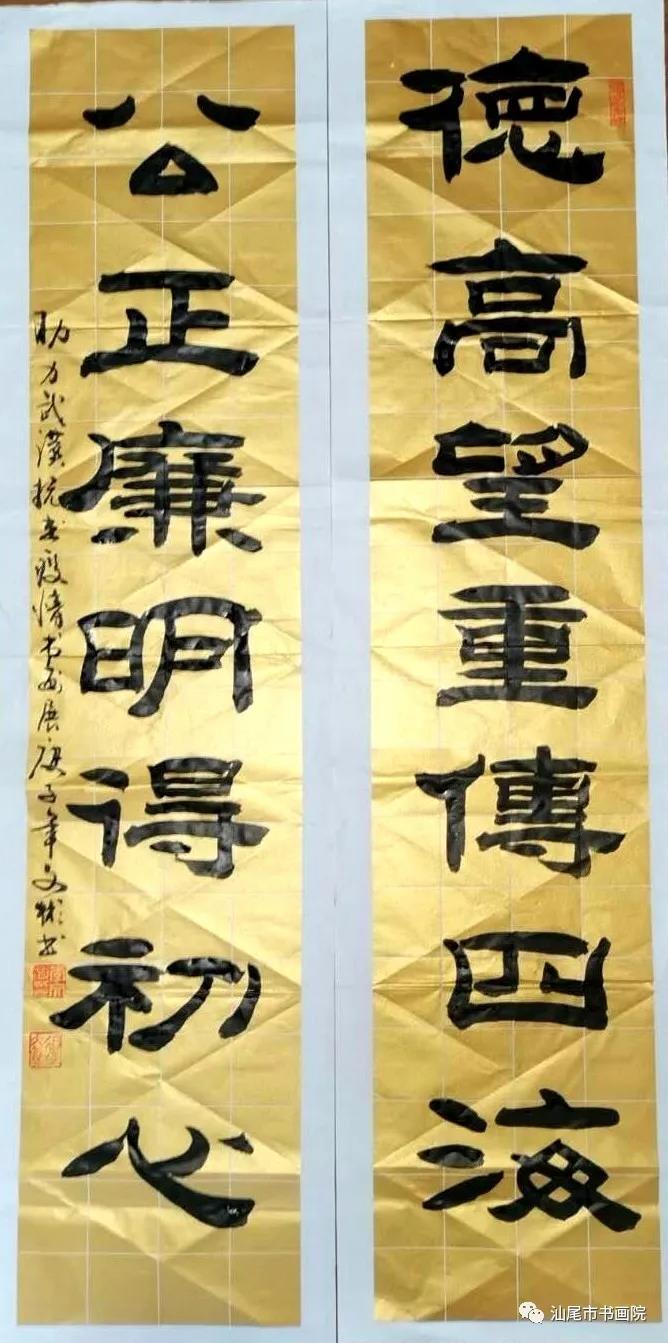 德高望重傳四海
公正廉明得初心
助力武漢抗击疫情书画展庚子年文彬书
汕尾市书画院